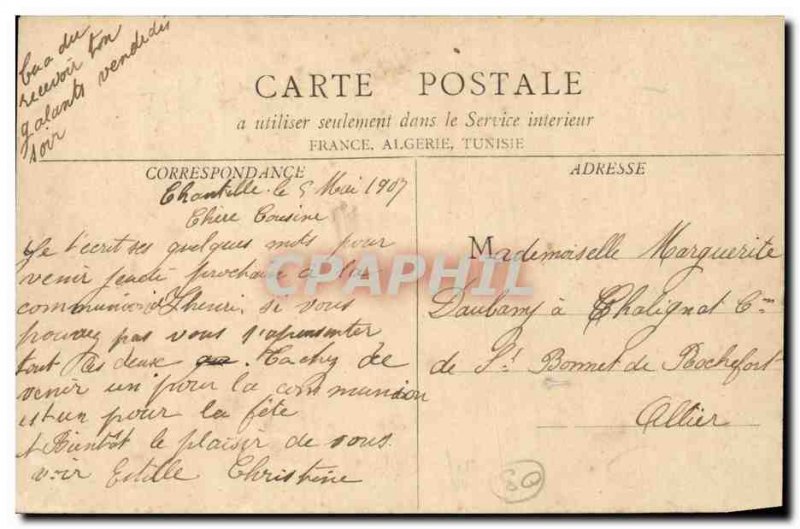 CARTE POSTALE
a utiliser seulement dans le Service interieur
FRANCE, ALGERIE, TUNISIE
CORRESPONDANCE
ADRESSE
recevoir ton
galants vendredi
soir
Chantelle le 5 Mai 1907
Chère Cousine
Je t'écrit ses quelques mots pour
venir jeudi prochain à la
communion d'Lhenri, si vous
pouvez pas vous s'absenter
tout les deux. Tachez de
venir un pour la communion
est un pour la fête
A Bientôt le plaisir de vous
voir Estelle Christine
Mademoiselle Marguerite
Daubany à Chalignat Cne
de St Bonnet de Rochefort
Allier
CPAPHIL